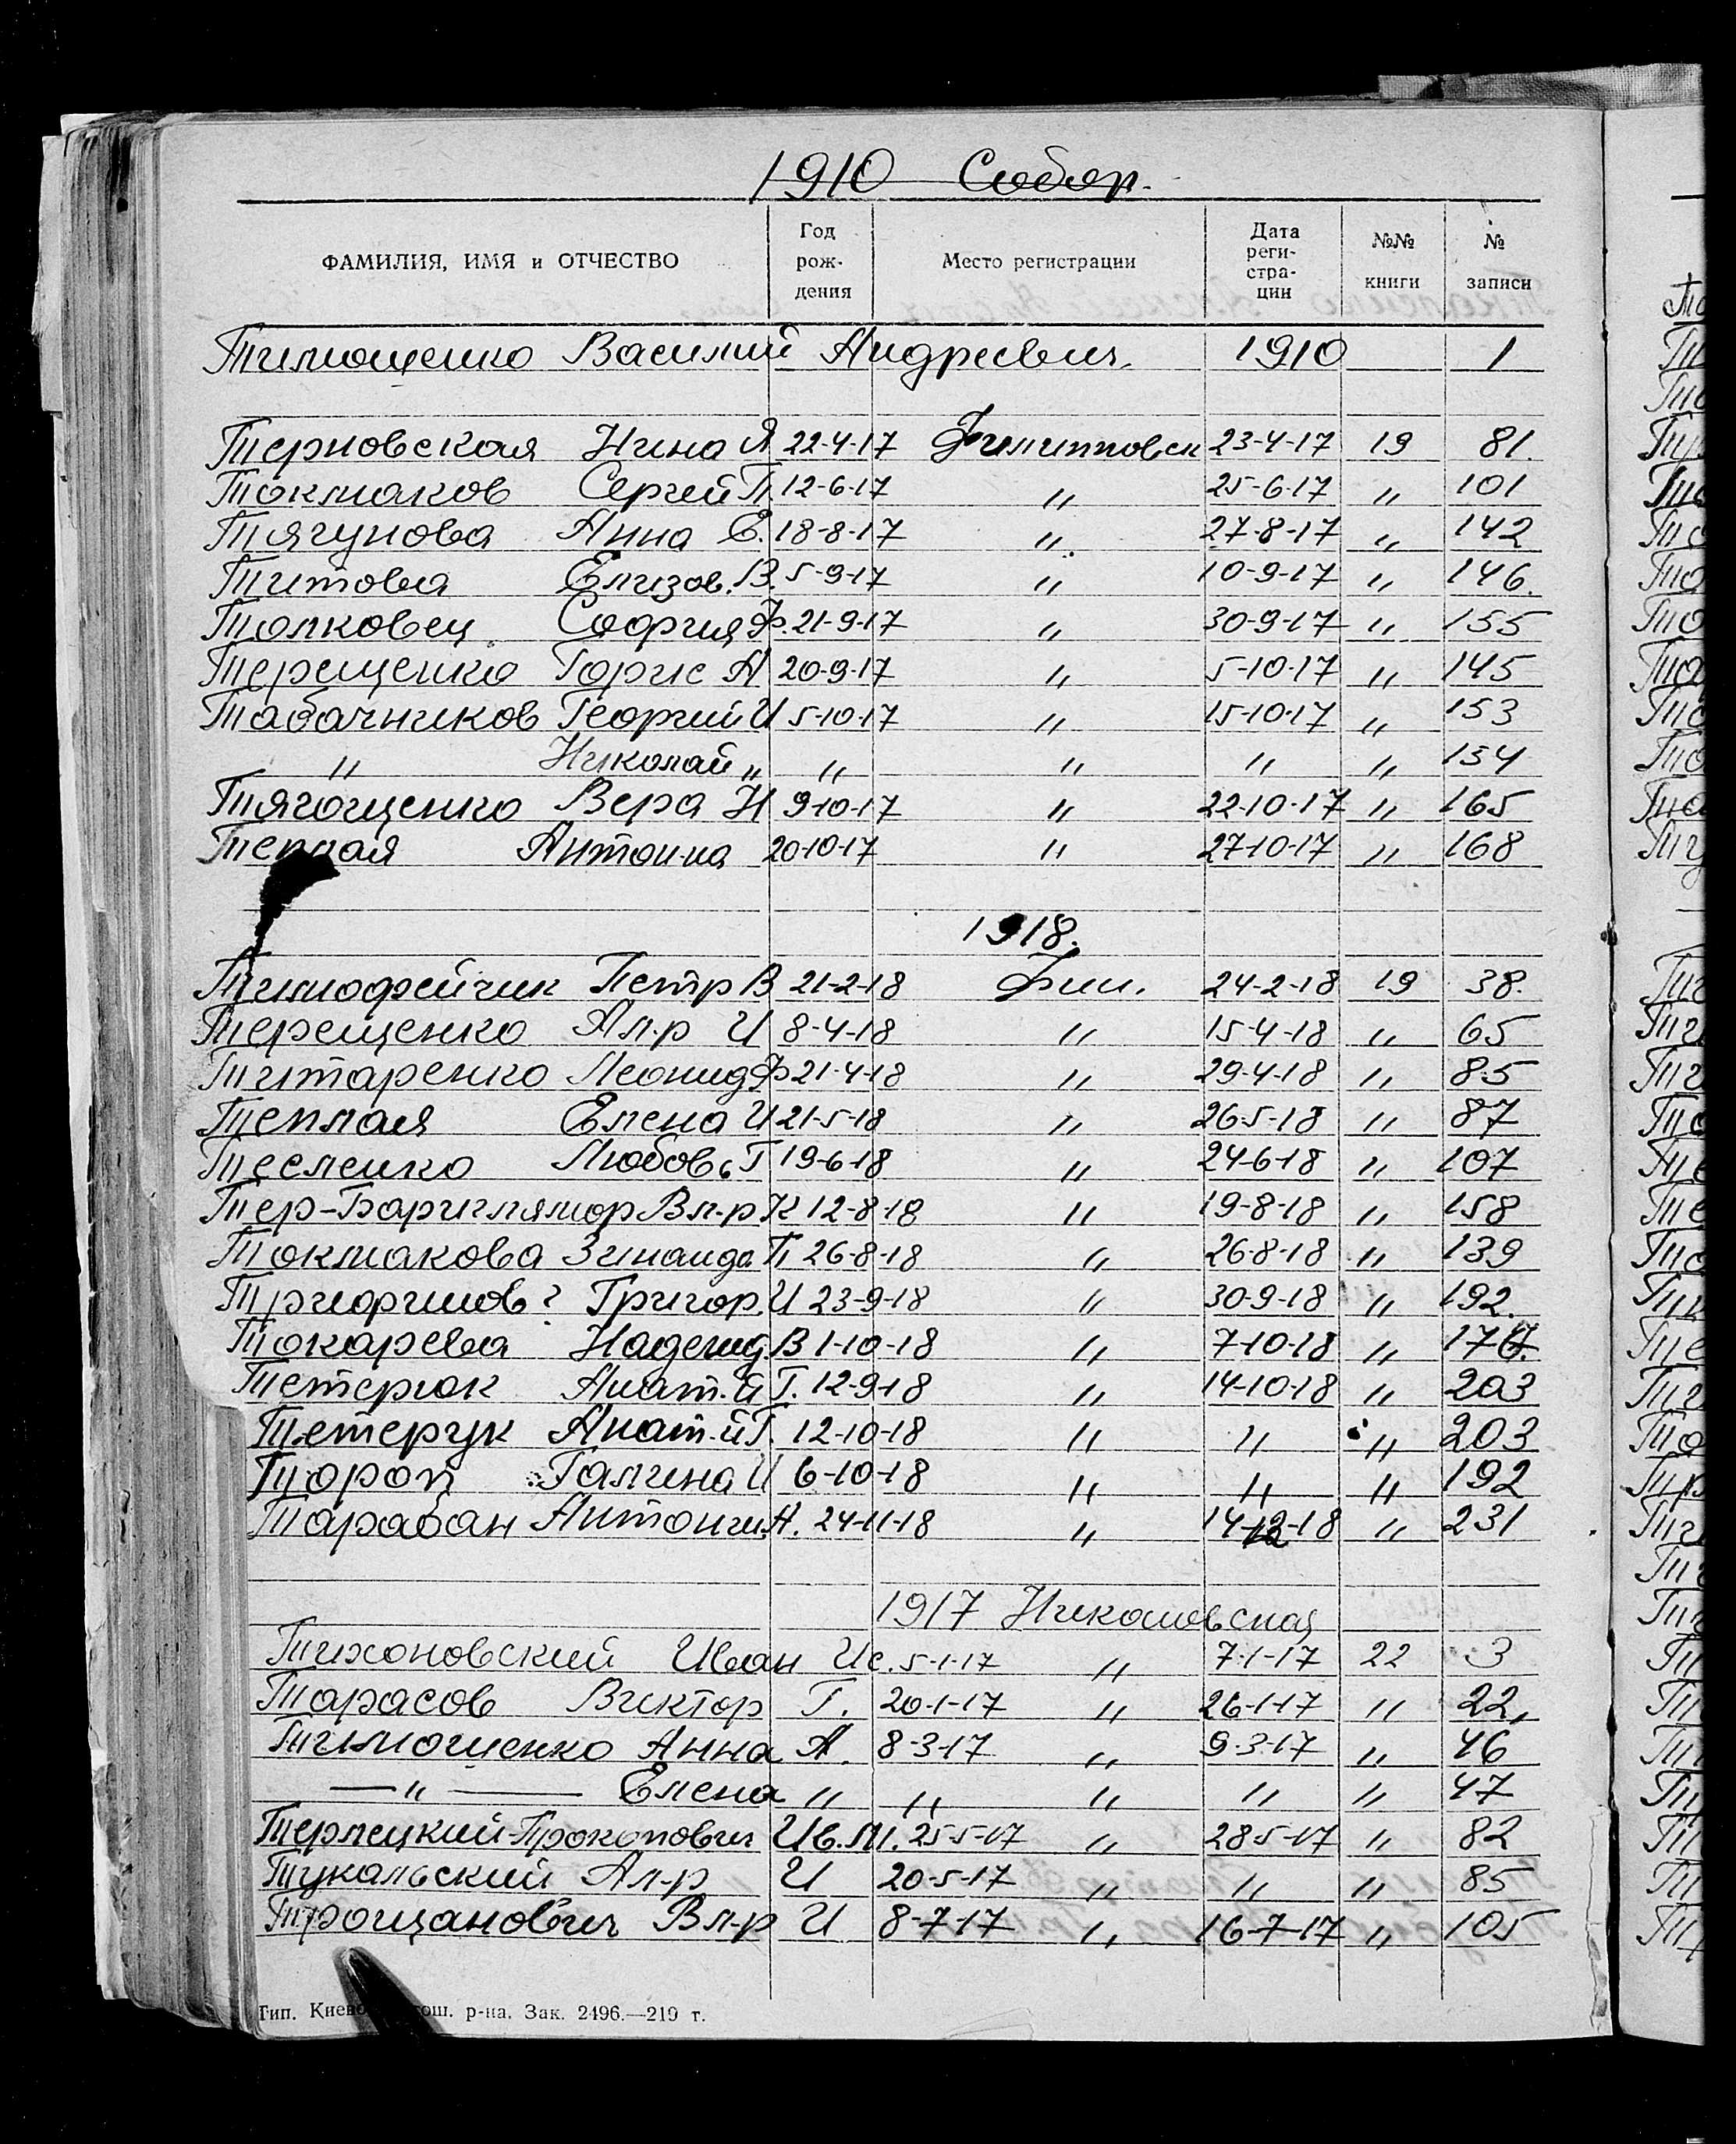 1910 Собор.
ФАМИЛИЯ, ИМЯ и ОТЧЕСТВО Год рождения Место регистрации Дата регистрации №№ книги № записи
Тимощенко Василий Андреевич. 1910 1
Терновская Нина Я 22-4-17 Филипповск 23-4-17 19 81.
Токмаков Сергей П. 12-6-17 " 25-6-17 " 101
Тягунова Анна Е. 18-8-17 " 27-8-17 " 142
Титова Елизов. В. 5-9-17 " 10-9-17 " 146.
Толковец София Ф. 21-9-17 " 30-9-17 " 155
Терещенко Горис А 20-9-17 " 5-10-17 " 145
Табачников Георгий И 5-10-17 " 15-10-17 " 153
" Николай " " " " " 154
Тягощенко Вера Н 9-10-17 " 22-10-17 " 165
Теплая Антон-на 20-10-17 " 27-10-17 " 168
1918.
Тимофейчик Петр В 21-2-18 Фил. 24-2-18 19 38.
Терещенко Ал-р И 8-4-18 " 15-4-18 " 65
Титаренко Леонид Ф 21-4-18 " 29-4-18 " 85
Теплая Елена И 21-5-18 " 26-5-18 " 87
Тесленко Любовь Г 19-6-18 " 24-6-18 " 107
Вл-р К 12-8-18 " 19-8-18 " 158
Токмакова Зинаида П 26-8-18 " 26-8-18 " 139
Григор. И 23-9-18 " 30-9-18 " 192.
Токарева Надежд. В 1-10-18 " 7-10-18 "
Тетерюк Анат-й Г. 12-9-18 " 14-10-18 " 203
Тетерук Анат-й Г. 12-10-18 " " " 203
Тороп Галина И 6-10-18 " " " 192
Тарабан Антони. А. 24-11-18 " 14-12-18 " 231
1917 Николовская
Тихоновский Иван Ис. 5-1-17 " 7-1-17 22 3
Тарасов Виктор Г. 20-1-17 " 26-1-17 " 22,
Тимошенко Анна А. 8-3-17 " 9-3-17 " 46
— " — Елена " " " " " 47
Терлецкий-Прокопович Ив. М. 25-5-17 " 28-5-17 " 82
Тукальский Ал-р И 20-5-17 " " " 85
Трощанович Вл-р И 8-7-17 " 16-7-17 " 105
Тип. р-на. Зак. 2496.—219 т.